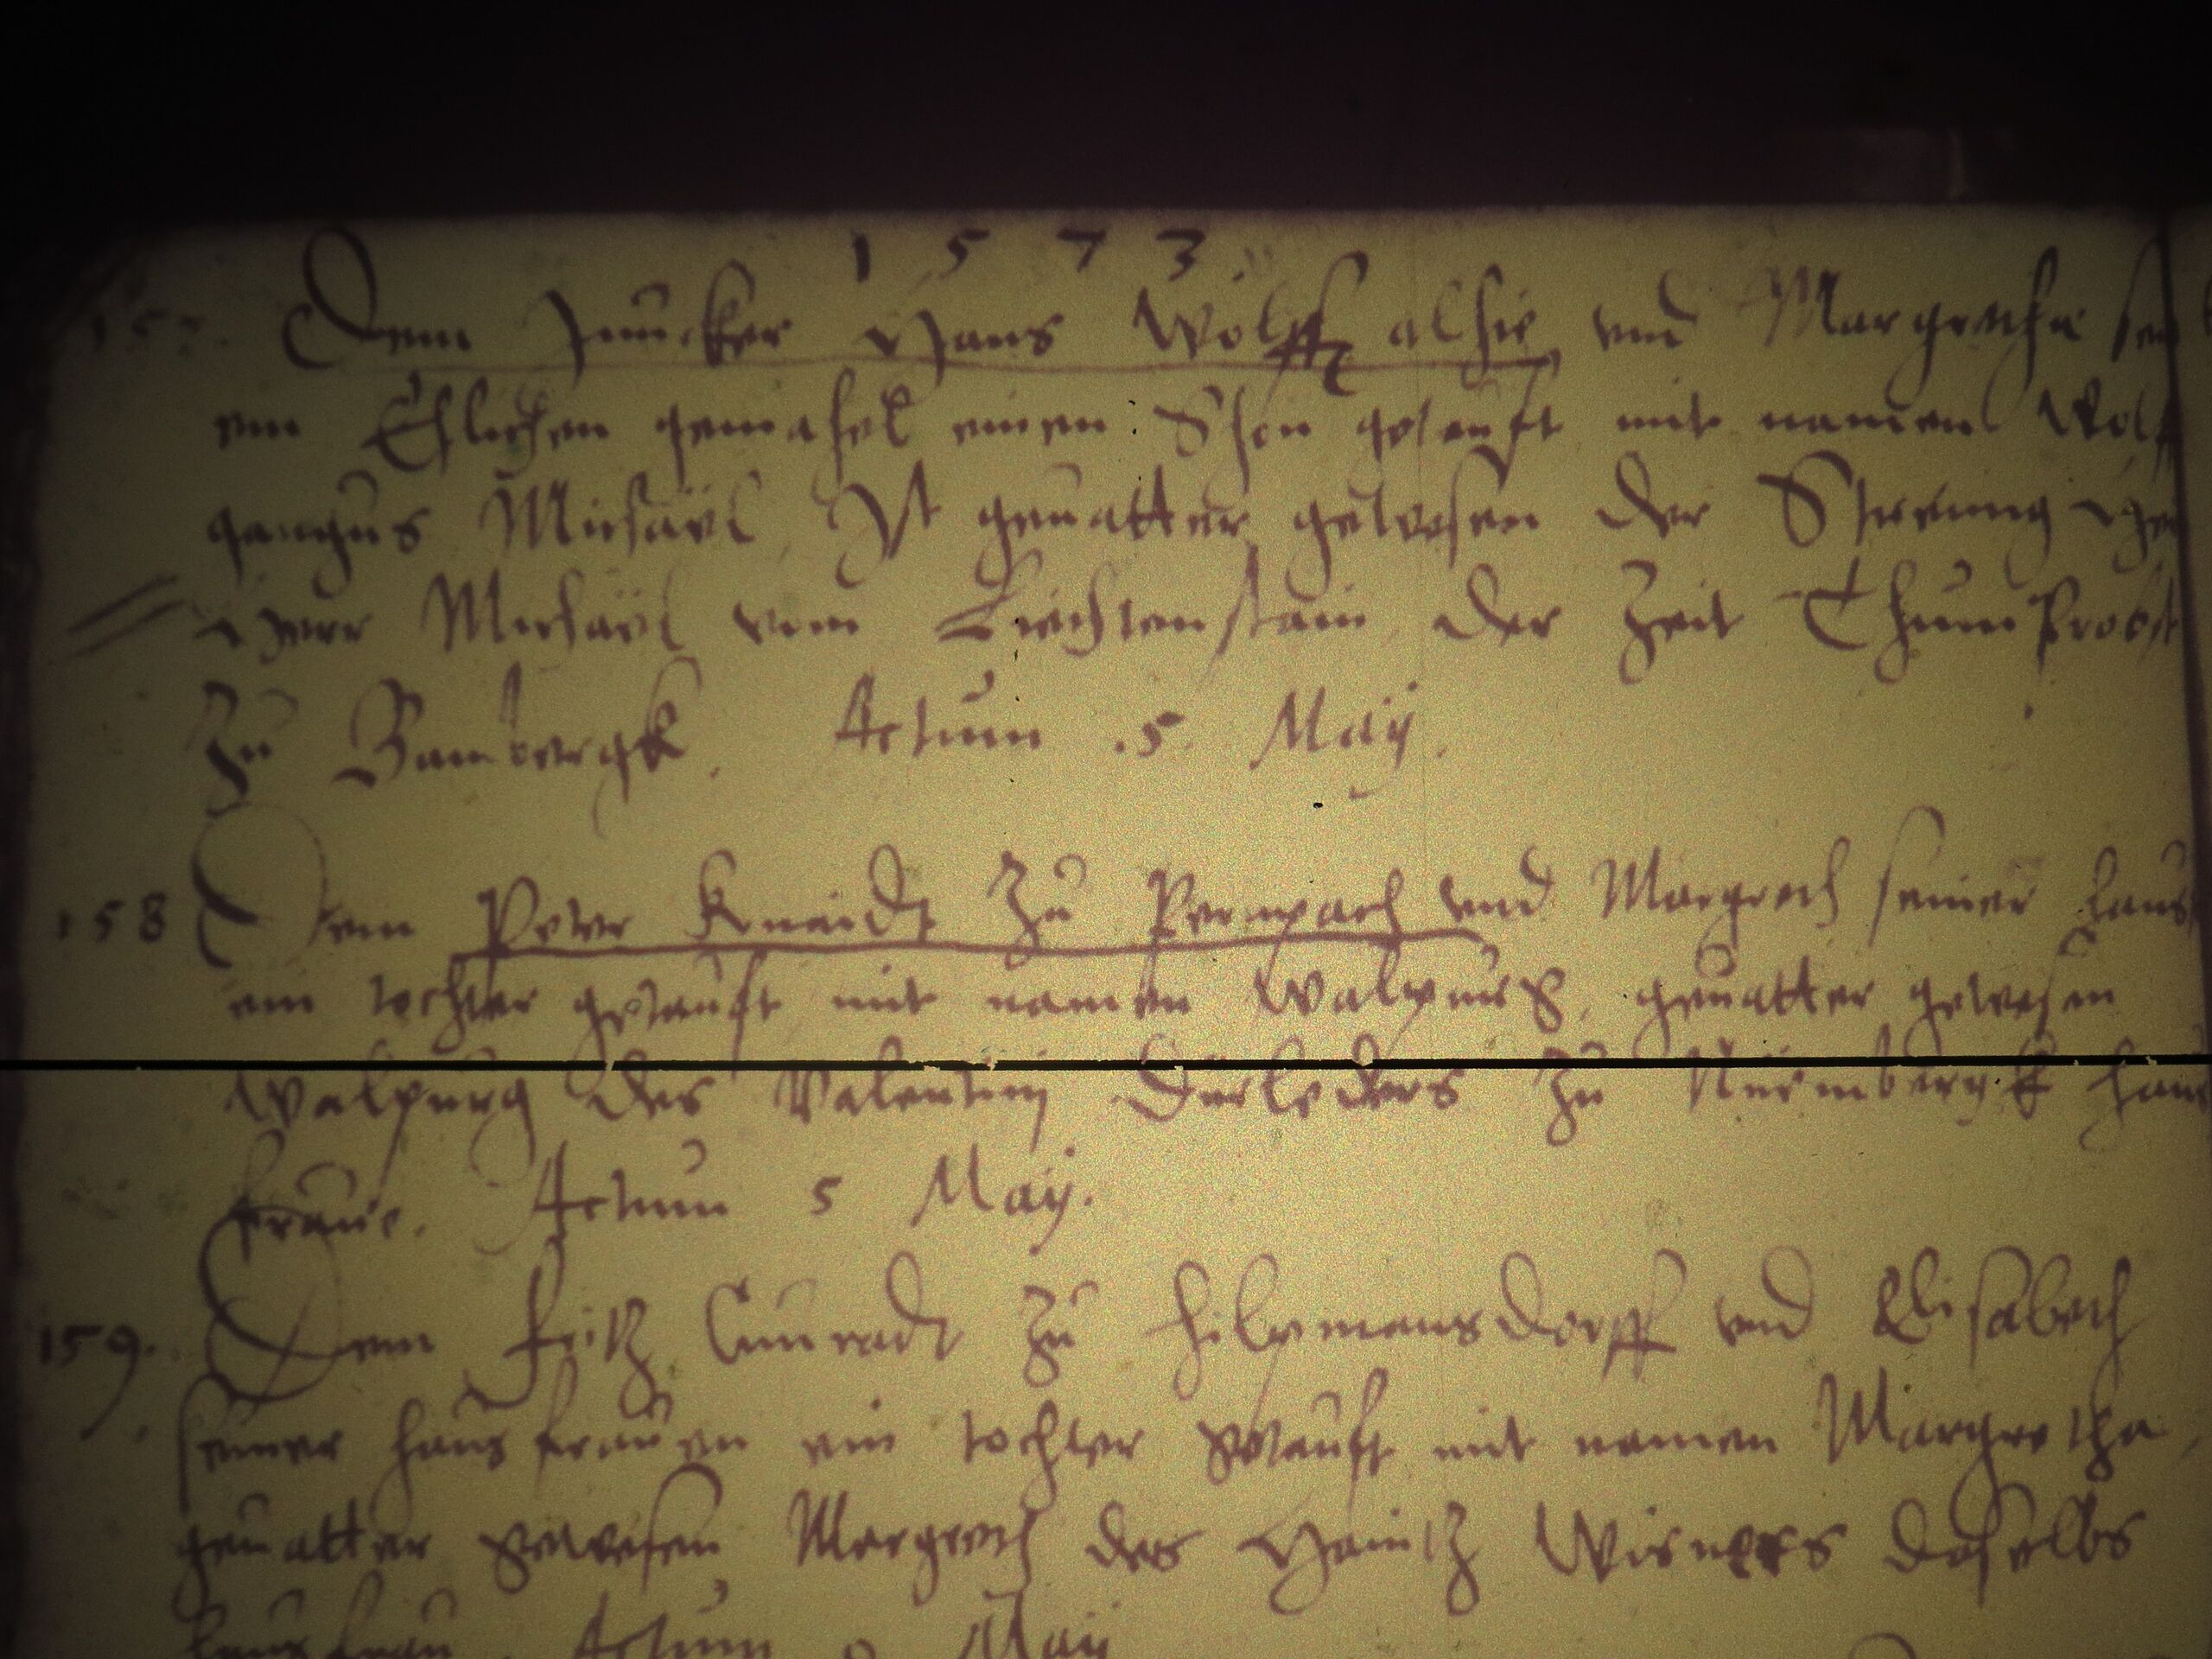 1 5 7 3.
157. Dem Juncker Hans Wolff alhie vnd Margretha sein
em Ehlichen gemahel einen Shon getaufft mit namen Wolf
gangus Michaël, Ist geuatter gewesen der
Herr Michaël vom Liechtenstain der Zeit ThumProbst
Zu Bambergk. Actum .5. Maij.
158 Dem Peter Knaidt Zu Pernpach vnd Margreth seiner haus
ein tochter getaufft mit namen Walpurg, geuatter gewesen
Walpurg des Valentin Zu Nürmbergk haus
fraue. Actum 5 Maij.
159. Dem Fritz Cunradt Zu Hilpmansdorff vnd Elisabeth
seiner hausfrauen ein tochter getaufft mit namen Margretha,
geuatter gewesen Margreth des Haintz Wisners doselbs
hausfrau. Actum Maij